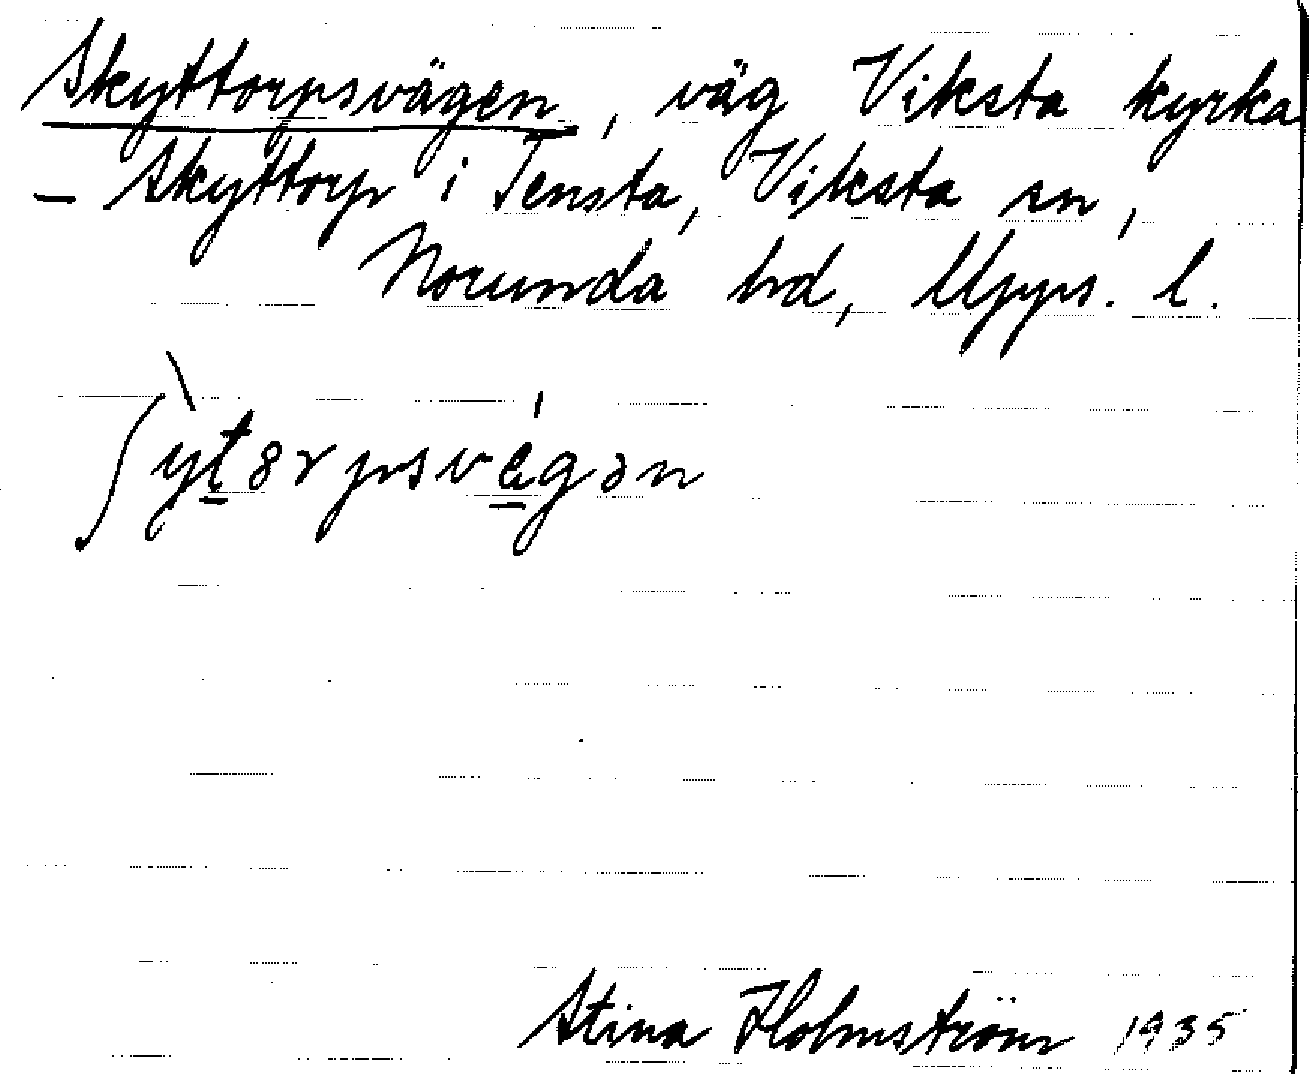 Skyttorpsvägen, väg Viksta kyrka
– Skyttorp i Tensta, Viksta sn,
Norunda hd, Upps. l.
ʃỳt8rpsvégən
Stina Holmström 1935